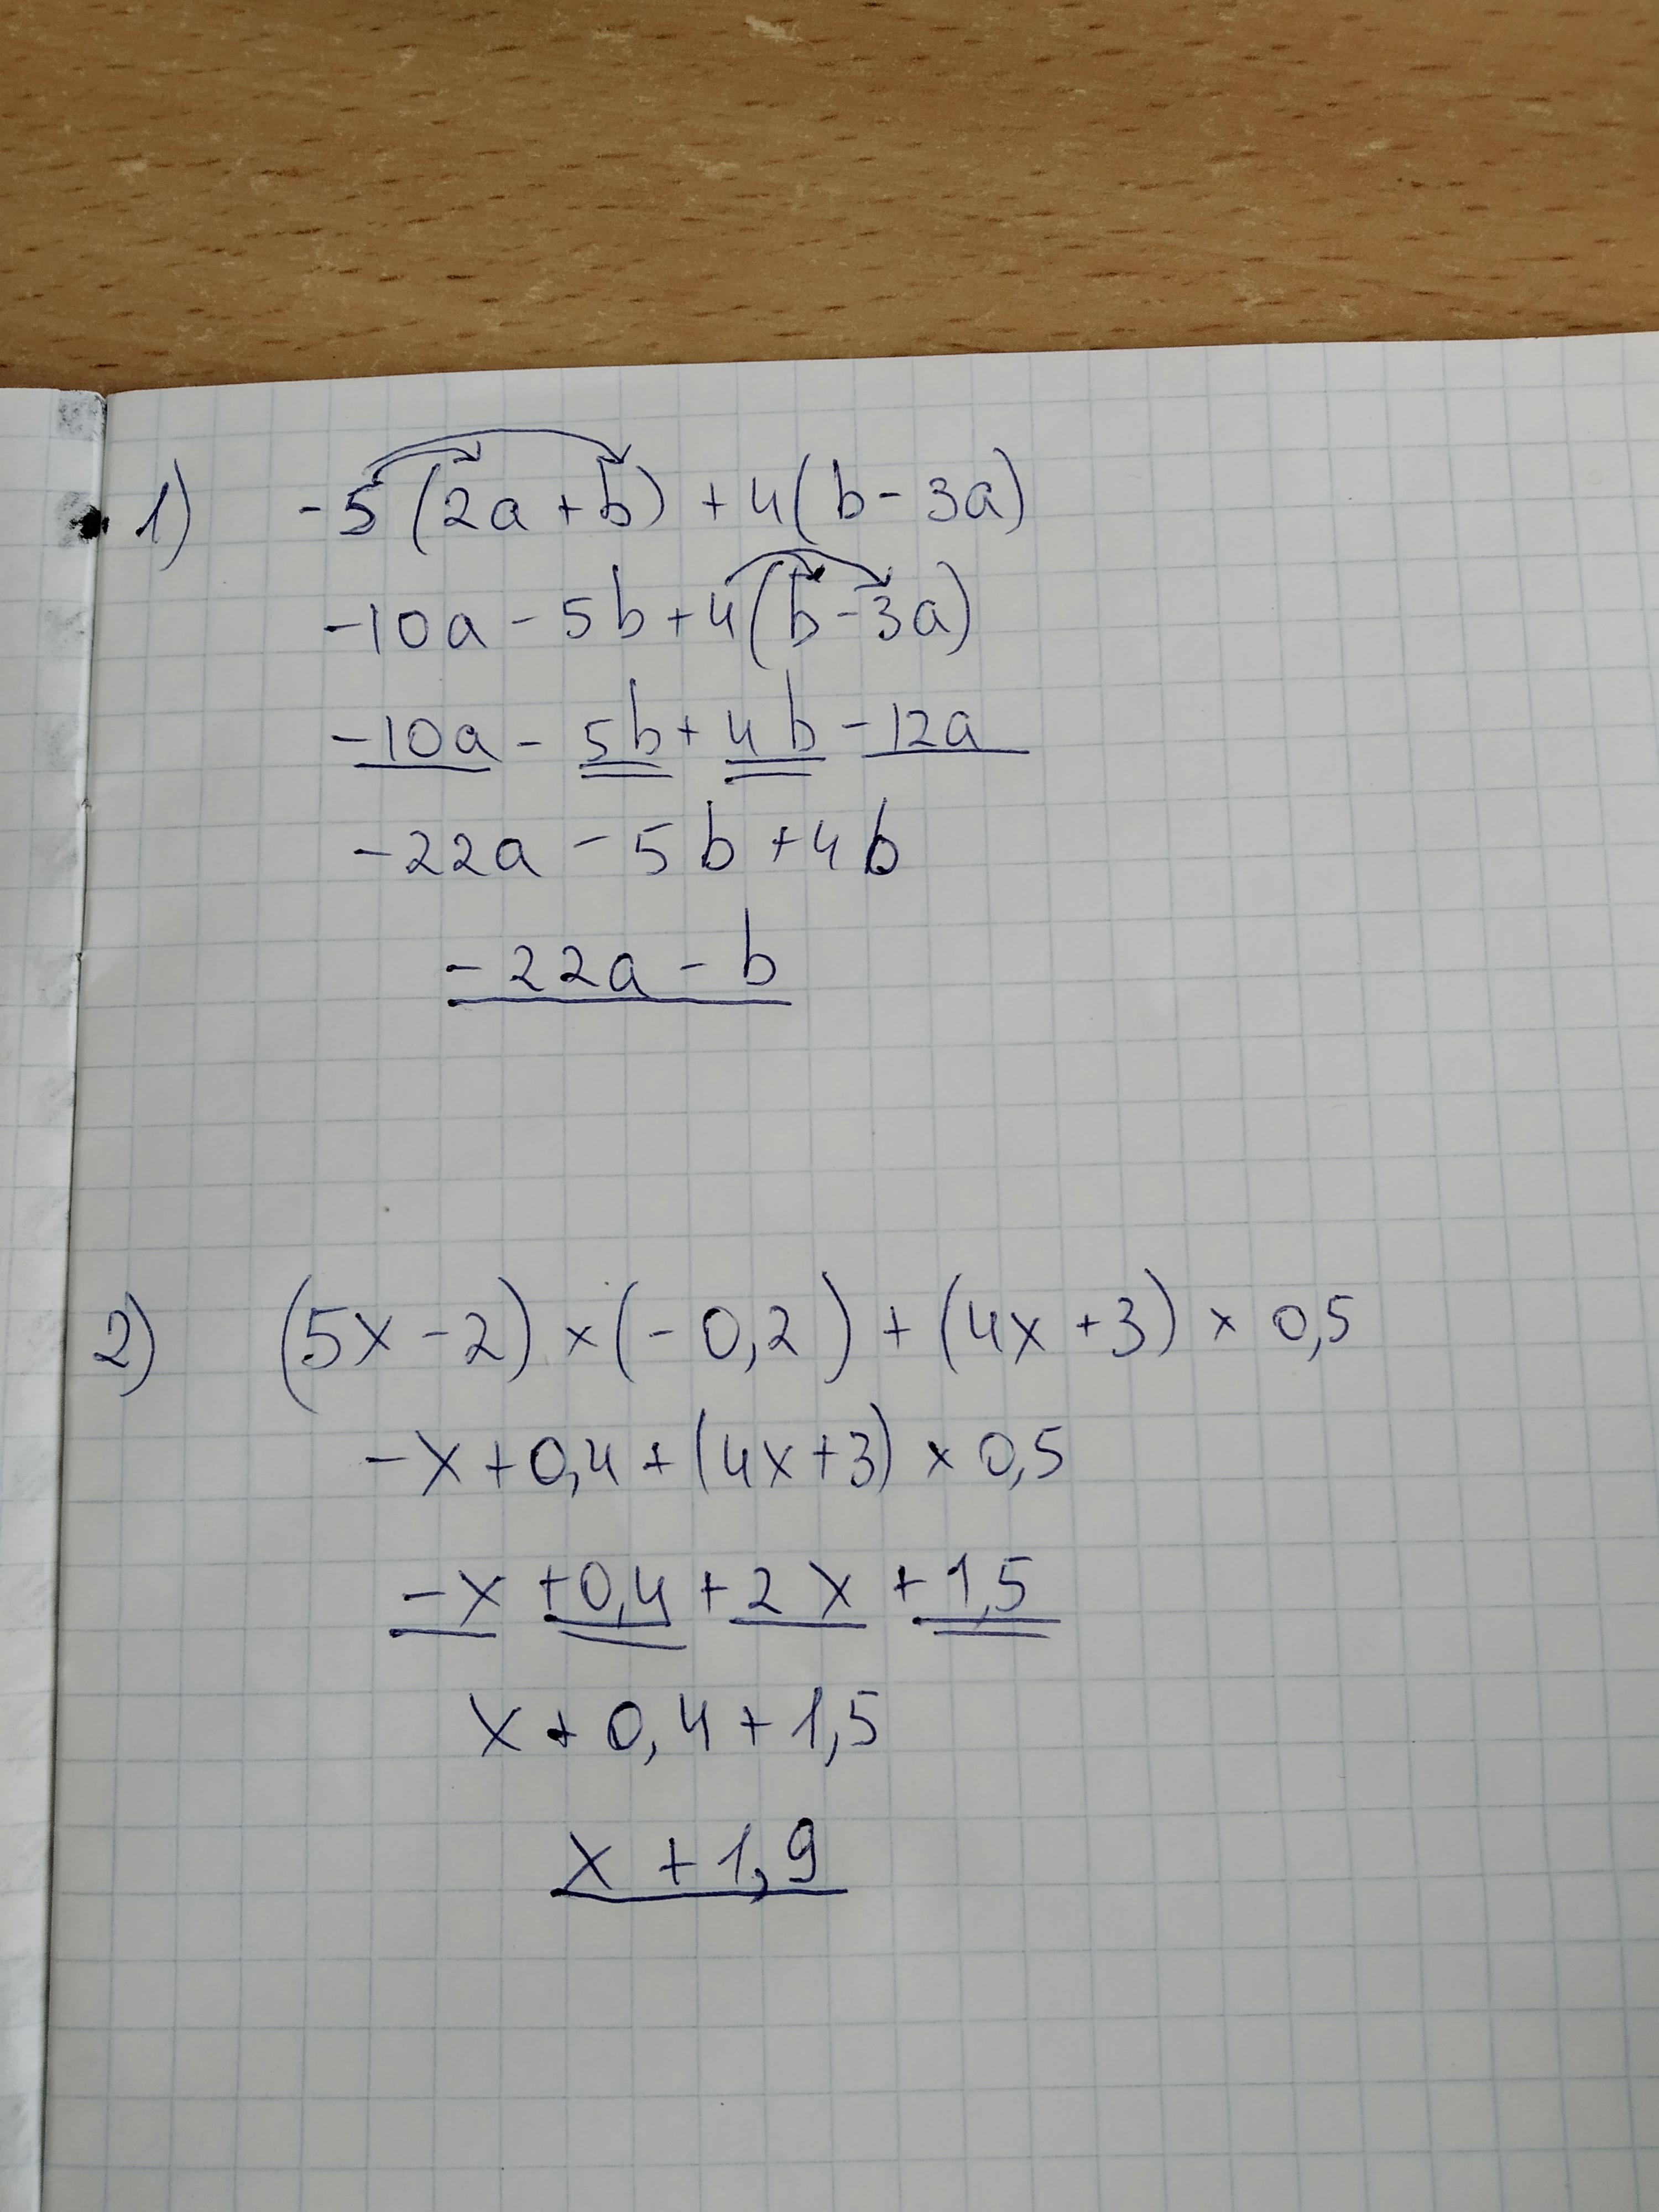 1) -5(2a+b)+4(b-3a)
-10a-5b+4(b-3a)
-10a-5b+4b-12a
-22a-5b+4b
-22a-b
2) (5x-2)×(-0,2)+(4x+3)×0,5
-x+0,4+(4x+3)×0,5
-x+0,4+2x+1,5
x+0,4+1,5
x+1,9